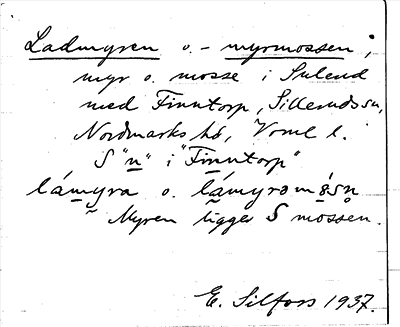 Ladmyren o. -myrmossen,
myr o. mosse i Sulend
med Finntorp, Sillerudssn,
Nordmarks hd, Vrml l.
S "n" i "Finntorp"
lámyra o. lámyrəmǻsn̥
Myren ligger S mossen.
E. Silfors 1937.